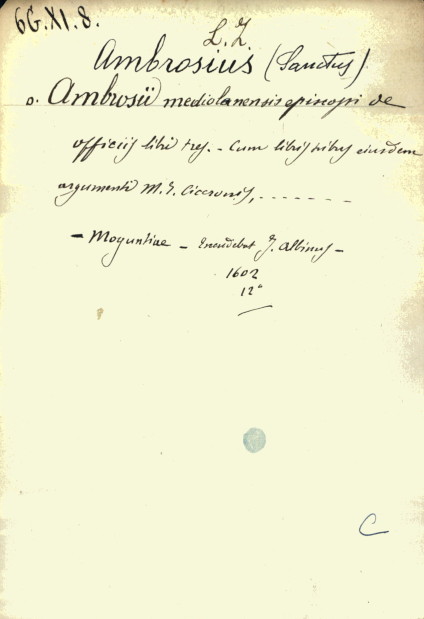 6G.XI.8.
L. Z.
Ambrosius (Sanctus)
o. Ambrosii mediolanensis episcopi de
officiis libri tres. - Cum libris tribus eiusdem
argumenti M. T. Ciceronis, - - - - - - -
- Moguntiae - Excudebat J. Albinus -
1602
12°
C